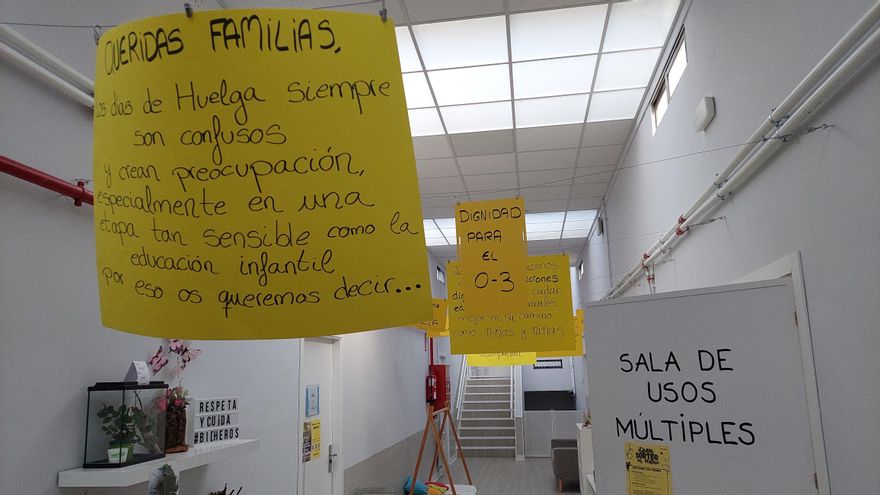 QUERIDAS FAMILIAS,
Los días de Huelga siempre
son confusos
y crean preocupación,
especialmente en una
etapa tan sensible como la
educación infantil
por eso os queremos decir...
DIGNIDAD
PARA
EL
0-3
mejor en su camino
como NIÑOS y NIÑAS
RESPETA
Y CUIDA
#BICHEROS
SALA DE
USOS
MÚLTIPLES
SORTEO